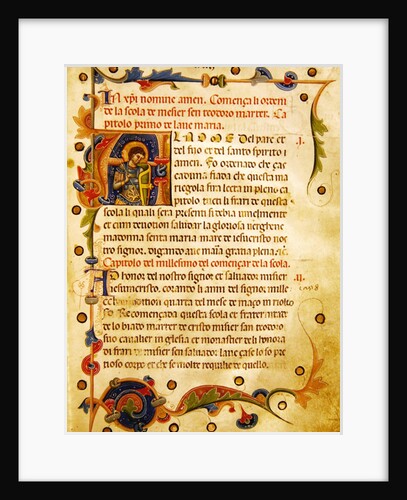 In xpi nomine amen. Comença li ordeni
de la scola de misier sen teodoro martere. Ca
pitolo primo de l ave maria.
.I.
Al nome Del pare et
del fiio et del santo spirito
amen. Fo ordenado che
fiada che questa
regola fira lecta in pleno ca
pitolo tuti li frari de questa
scola li quali sera presenti si debia umelmente
et cum devotion saludar la gloriosa vergene
madonna senta maria mare de iesu cristo nos
tro signor. digando ave maria gratia plena.
Capitolo del millesimo del començar de la scola.
.II.
Ad honor del nostro signor et salvador misier
iesu cristo. corando li anni del signor mille
indiction quarta del mese de março in rivolto
Se Recomençada questa scola et fraternitate
de lo biado martere de cristo misier san teodoro
so cavalier in glesia et monastier de li honora
di frari de misier sen salvador. la o che caso lo so pre
cioso corpo et che se molte requirite de quello.